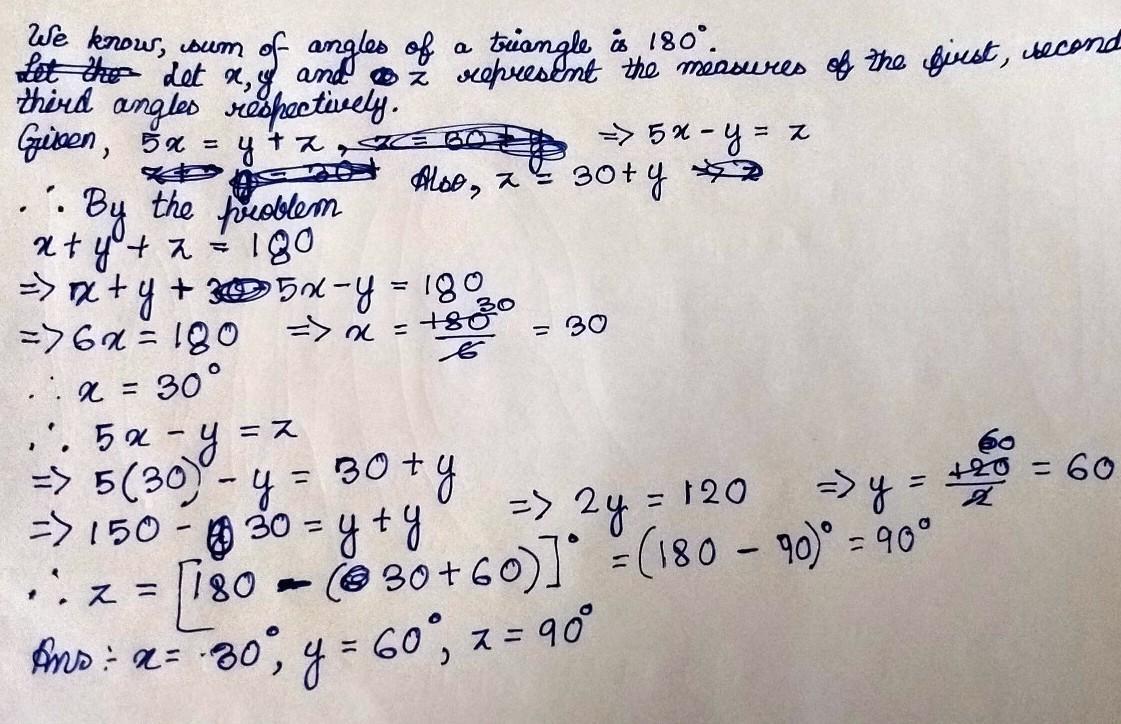 We know, sum of angles of a triangle is 180°.
Let the Let x, y and z represent the measures of the first, second
third angles respectively.
Given, 5x = y + z, z = 30 + y ⇒ 5x - y = z
Also, z = 30 + y
∴ By the problem
x + y + z = 180
⇒ x + y + 5x - y = 180
⇒ 6x = 180 ⇒ x = 180/6 30 = 30
∴ x = 30°
∴ 5x - y = z
⇒ 5(30) - y = 30 + y
⇒ 150 - 30 = y + y ⇒ 2y = 120 ⇒ y = 120/2 60 = 60
∴ z = [180 - (30 + 60)]° = (180 - 90)° = 90°
Ans :- x = 30°, y = 60°, z = 90°